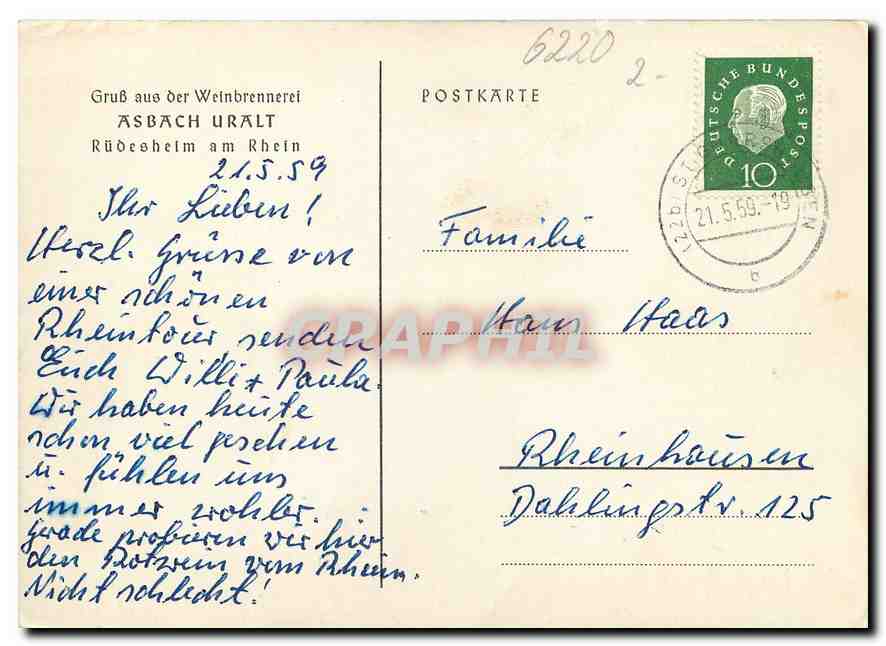 6220
2.-
Gruß aus der Weinbrennerei
ASBACH URALT
Rüdesheim am Rhein
POSTKARTE
DEUTSCHE BUNDESPOST
10
(22b) ST.
21.5.59.-19
b
21.5.59
Ihr Lieben!
Herzl. Grüsse von
einer schönen
Rheintour senden
Euch Willi + Paula.
Wir haben heute
schon viel gesehen
u. fühlen uns
immer wohler.
Gerade probieren wir hier
den Rotwein vom Rhein.
Nicht schlecht!
Familie
Hans Haas
Rheinhausen
Dahlingstr. 125
GRAPHIL